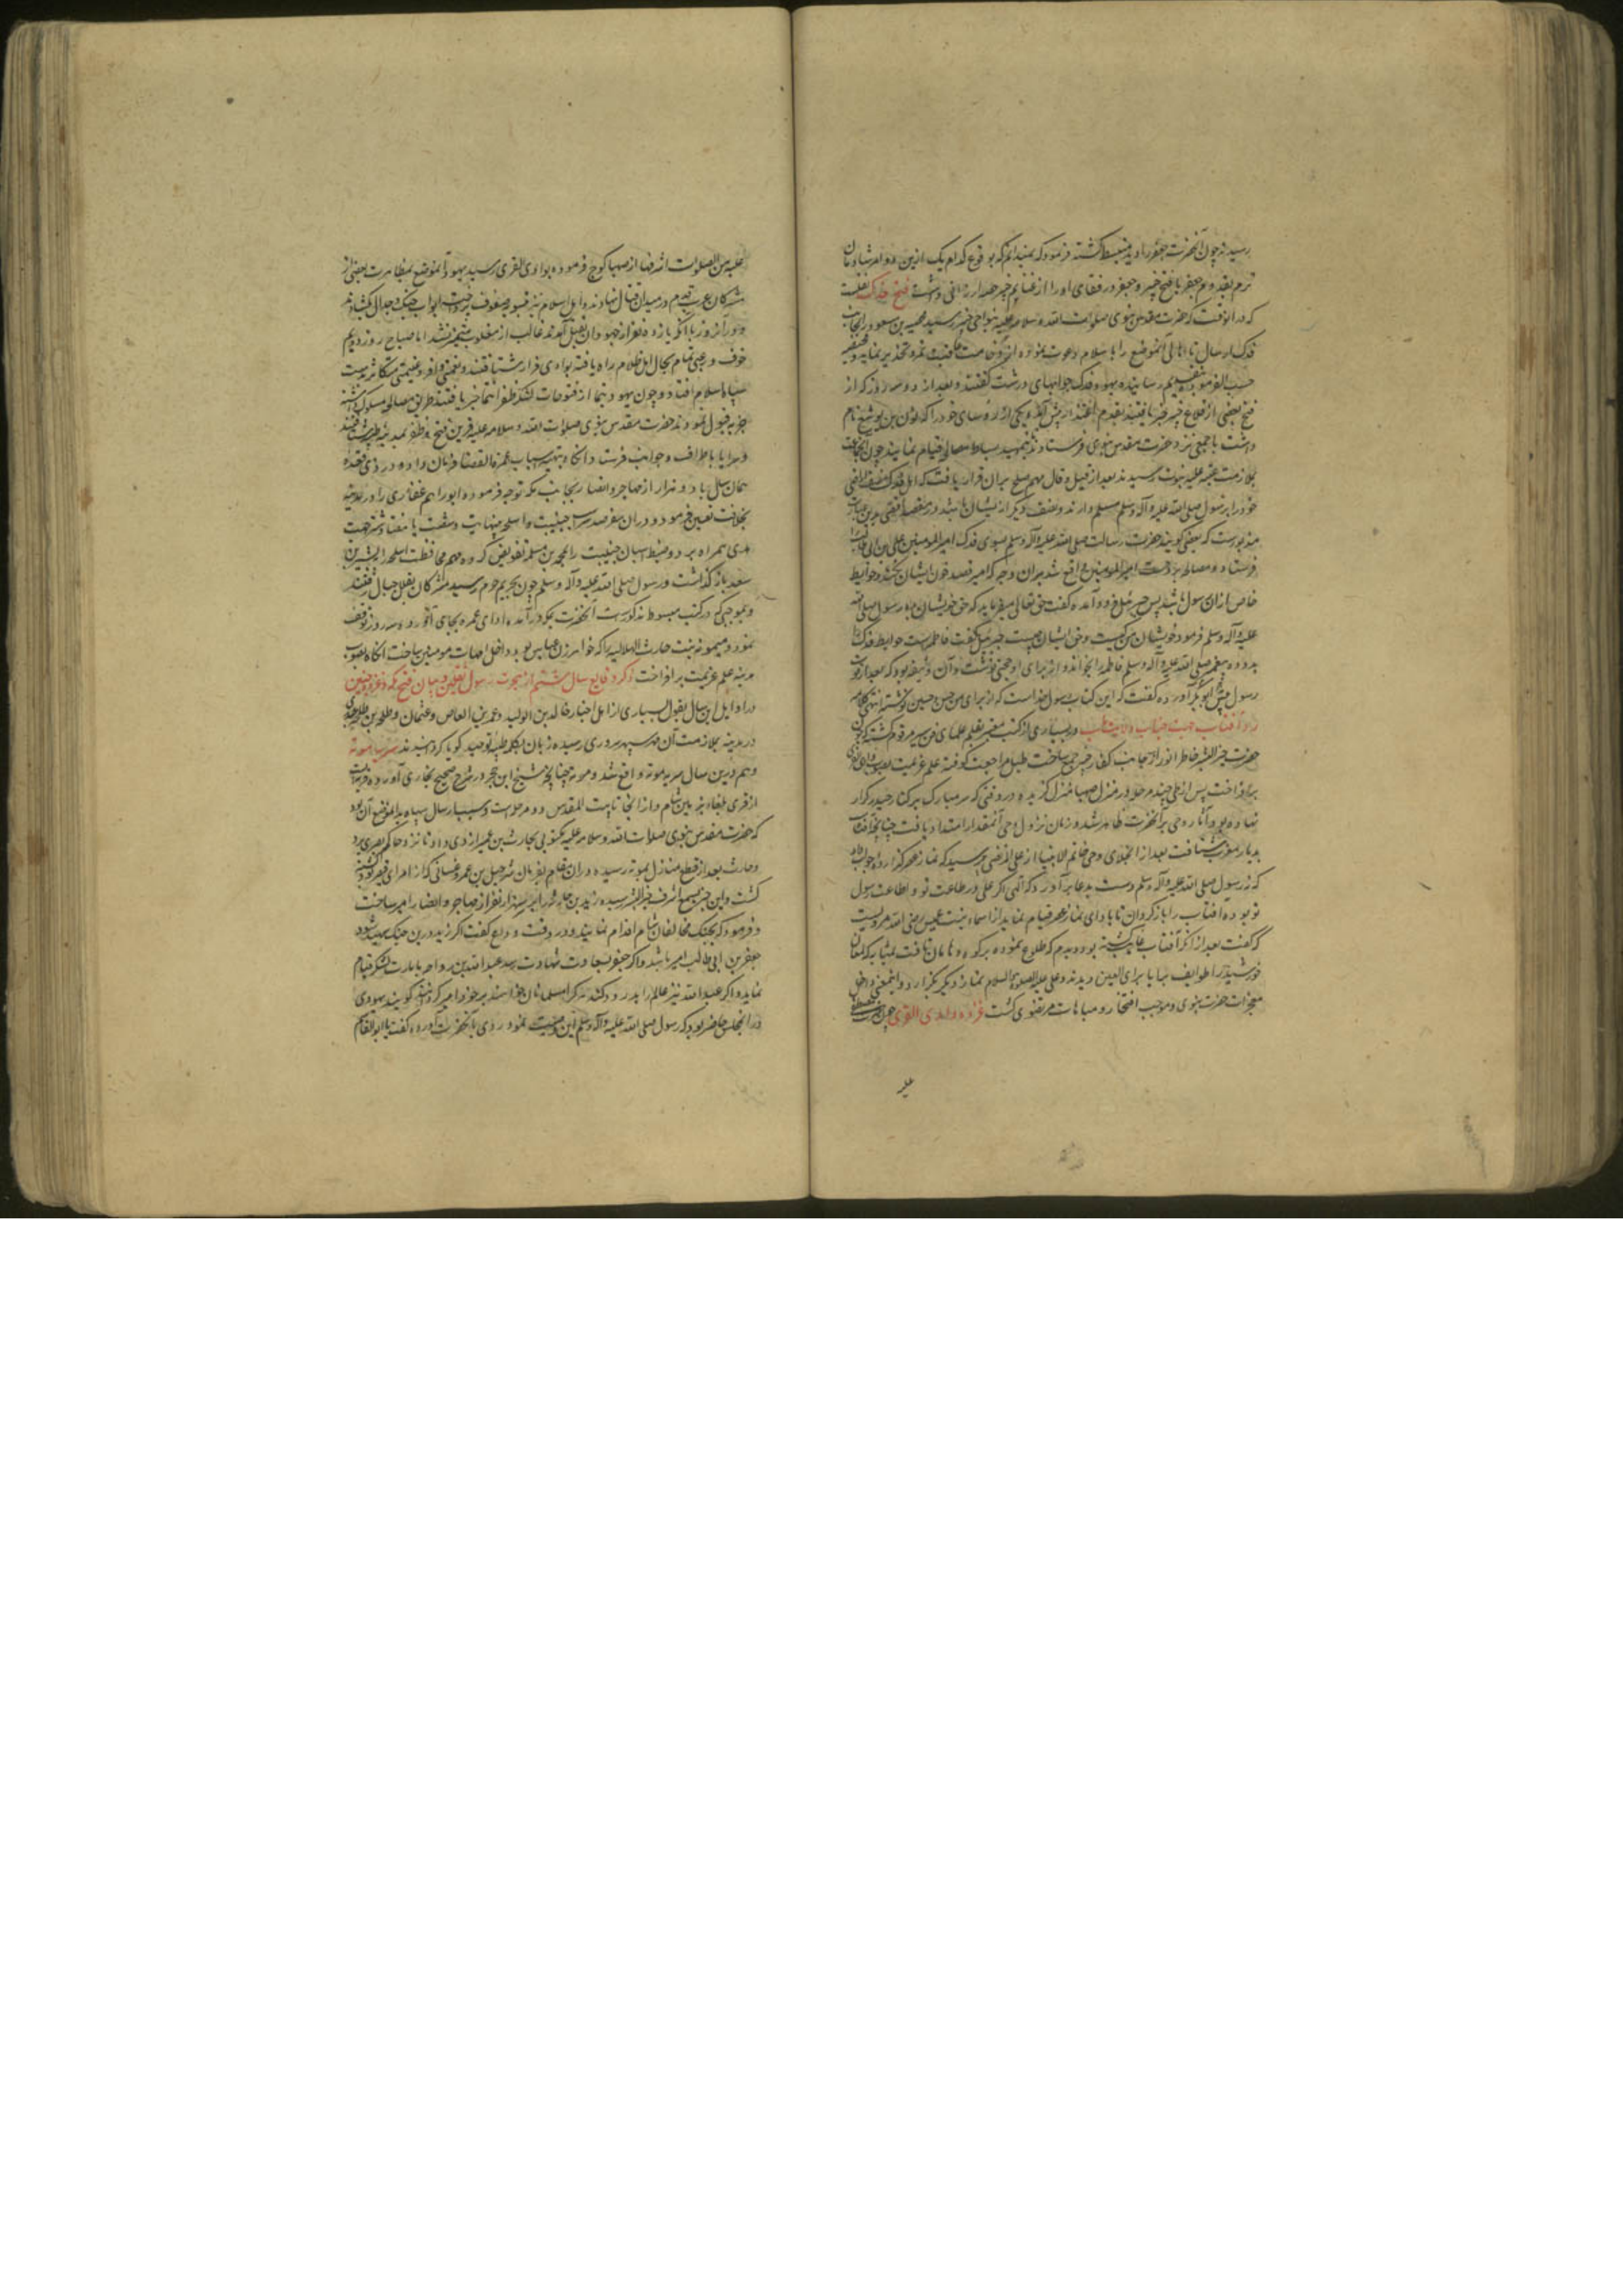 رسیدند چون آنحضرت جعفر را دید منبسط گشته فرمود که نمیدانم که بوقوع کدام یک ازین دو امر شادمان
ترم بقدوم جعفر یا فتح خیبر و جعفر و رفقای او را از غنایم خیبر ارزانی داشت فتح فدک نقلست
که در آنوقت که حضرت مقدس نبوی صلوات الله و سلامه علیه بنواحی خیبر رسید محیصه بن مسعود را بجانب
فدک ارسال تا اهالی آنموضع را باسلام دعوت نموده از وخامت عاقبت تمرد تحذیر نماید و محیصه
حسب الفرموده بتقدیم رسانیده یهود فدک جوابهای درشت گفتند و بعد از دو سه روز که از
فتح بعضی از قلاع خیبر خبر یافتند بقدم اعتذار پیش آمده یکی از رؤسای خود را که نون بن یوشع نام
داشت با جمعی نزد حضرت مقدس نبوی فرستادند تا بتمهید بساط مصالحه قیام نمایند چون آنجماعت
بملازمت عتبه علیه نبوت رسیدند بعد از قیل و قال مهم صلح بران قرار یافت که اهل فدک نصف اراضی
خود را برسول صلی الله علیه و آله وسلم مسلم دارند و نصف دیگر از ایشان باشد در مقصد اقصی بدین عبارت
مذبورست که بعضی گویند حضرت رسالت صلی الله علیه و آله وسلم بسوی فدک امیرالمومنین علی بن ابی طالب را
فرستاد و مصالحه بر دست امیرالمومنین واقع شد بران وجه که امیر قصد خون ایشان نکند و حوایط
خاص ازان رسول باشد پس جبرئیل فرود آمده گفت حق تعالی میفرماید که حق خویشان بده رسول صلی الله
علیه و آله وسلم فرمود خویشان من کیست و حق ایشان چیست جبرئیل گفت فاطمه است حوایط فدک را
بدو ده پیغمبر صلی الله علیه و آله وسلم فاطمه را بخواند و از برای او حجتی نوشت و آن وثیقه بود که بعد از وفات
رسول پیش ابوبکر آورده گفت که این کتاب رسول خداست که از برای من و حسن و حسین نوشته انتهی کلامه
رد آفتاب جهت جناب ولایت مآب در بسیاری از کتب معتبر بقلم علمای فن سیر مرقوم گشته که چون
حضرت خیرالبشر خاطر انور از جانب کفار خیبر جمع ساخت طبل مراجعت کوفته علم عزیمت بصوب وادی القری
برافراخت پس از طی چند مرحله در منزل صهبا منزل گزیده در وقتی که سر مبارک بر کنار حیدر کرار
نهاده بود آثار وحی بر آنحضرت ظاهر شد و زمان نزول وحی آنمقدار امتداد یافت چنانچه آفتاب
بدیار مغرب شتافت بعد از انجلای وحی خاتم الانبیا از علی المرتضی پرسید که نماز عصر گذارده جواب داد
که نه رسول صلی الله علیه و آله وسلم دست بدعا برآورد که الهی اگر علی در طاعت تو و اطاعت رسول
تو بوده آفتاب را بازگردان تا بادای نماز عصر قیام نماید از اسماء بنت عمیس رضی الله عنها مرویست
که گفت بعد از آنکه آفتاب غایب گشته بود دیدم که طلوع نموده بر کوه و هامون تافت بمثابه که لمعان
خورشید را طوایف برایا برای العین دیدند و علی علیه الصلوة و السلام نماز دیگر بگزارد و اینمعنی داخل
معجزات حضرت نبوی و موجب افتخار و مباهات مرتضوی گشت غزوه وادی القری چون حضرت مصطفی
علیه
علیه من الصلوات اتمها از صهبا کوچ فرموده بوادی القری رسید یهود آنموضع بمظاهرت بعضی از
مشرکان عرب قدم در میدان قتال نهادند و اهل اسلام نیز بتسویه صفوف پرداخته ابواب جنگ و جدال بگشادند
و در آنروز با آنکه یازده نفر از جهودان بقتل آمدند غالب از مغلوب متمیز نشد اما صباح روز دویم
خوف و رعبی تمام بحال اهل ظلام راه یافته بوادی فرار شتافتند و نعمتی وافر و غنیمتی متکاثر بدست
سپاه اسلام افتاد و چون یهود تیما از فتوحات لشکر ظفر انتما خبر یافتند طریق مصالحه مسلوک داشته
جزیه قبول نمودند حضرت مقدس نبوی صلوات الله و سلامه علیه قرین فتح و ظفر بمدینه طیبه شتافتند
و سرایا باطراف و جوانب فرستاد آنگاه بتهیه اسباب عمرة القضا فرمان داده در ذی قعده
همان سال با دو هزار از مهاجر و انصار بجانب مکه توجه فرموده ابورهم غفاری را در مدینه
بخلافت تعیین فرمود و در ان سفر صد سر اسب جنیبت و اسلحه بینهایت و شصت یا هفتاد شتر جهت
هدی همراه برد و ضبط اسبان جنیبت را بمحمد بن مسلمه تفویض کرده و مهم محافظت اسلحه را ببشیر بن
سعد بازگذاشت و رسول صلی الله علیه و آله وسلم چون بحریم حرم رسید مشرکان بقلل جبال رفتند
و بموجبی که در کتب مبسوطه مذکورست آنحضرت بمکه درآمده ادای عمره بجای آورده و سه روز توقف
نمود و میمونه بنت حارث الهلالیه را که خواهر زن عباس بود داخل امهات مومنین ساخت آنگاه بصوب
مدینه علم عزیمت برافراخت ذکر وقایع سال هشتم از هجرت رسول ثقلین و بیان فتح مکه و غزوه حنین
در اوایل این سال بقول بسیاری از اهل اخبار خالد بن الولید و عمرو بن العاص و عثمان بن طلحه
در مدینه بملازمت آن مهر سپهر سروری رسیده زبان بکلمه طیبه توحید گویا گردانیدند سریه موته
و هم درین سال سریه موته واقع شد و موته چنانچه شیخ ابن حجر در شرح صحیح بخاری آورده قریه ایست
از قری بلقاء بزمین شام و از آنجا تا بیت المقدس دو مرحله است و سبب ارسال سپاه بدانموضع آن بود
که حضرت مقدس نبوی صلوات الله و سلامه علیه مکتوبی بحارث بن عمیر ازدی داد تا نزد حاکم بصری برد
و حارث بعد از قطع منازل بموته رسیده در ان مقام بفرمان شرحبیل بن عمرو غسانی که از امرای قیصر بود کشته
گشت و این خبر بسمع اشرف خیرالبشر رسیده زید بن حارثه را بر سه هزار نفر از مهاجر و انصار امیر ساخت
و فرمود که بجنگ مخالفان شام اقدام نمایند و در وقت وداع گفت اگر زید درین جنگ شهید شود
جعفر بن ابی طالب امیر باشد و اگر جعفر بسعادت شهادت رسد عبدالله بن رواحه بامارت لشکر قیام
نماید و اگر عبدالله نیز عالم را بدرود کند هر که را مسلمانان خواهند بر خود امیر گردانند گویند یهودی
در آنمجلس حاضر بود که رسول صلی الله علیه و آله وسلم این وصیت نمود روی بآنحضرت آورده گفت یا ابوالقاسم